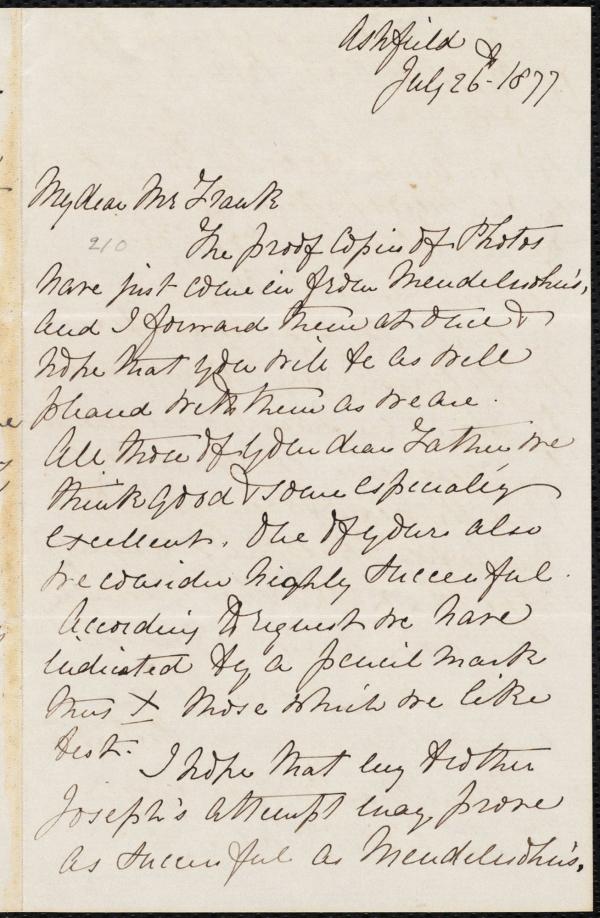 Ashfield
July 26th 1877
My dear Mr Frank
210
The proof Copies of Photos
have just come in from Mendelssohn's,
and I forward them at once &
hope that you will be as well
pleased with them as we are.
All those of your dear Father we
think good & some especially
excellent. One of yours also
we consider highly successful.
According to request we have
indicated by a pencil mark
thus X those which we like
best.
I hope that my brother
Joseph's attempt may prove
as successful as Mendelssohn's,